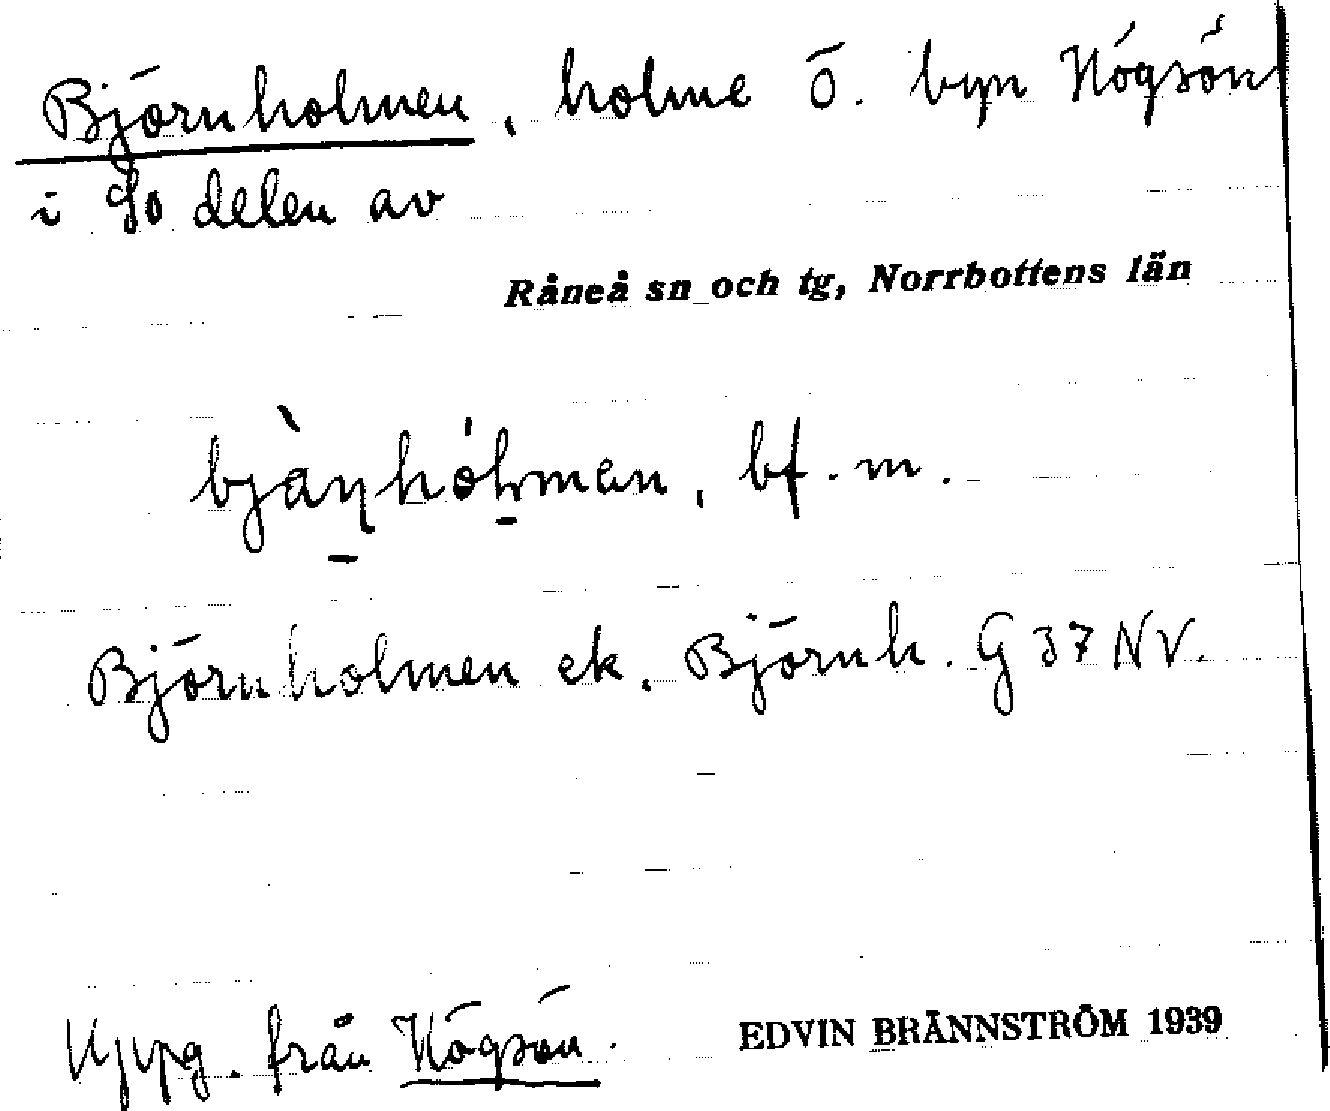 Björnholmen, holme ö. byn Högsön
i So delen av
Råneå sn och tg, Norrbottens län
bjàṉhóḻmen, bf. m.
Björnholmen ek. Björnh. G 37 NV.
Uppg. från Högsön.
EDVIN BRÄNNSTRÖM 1939